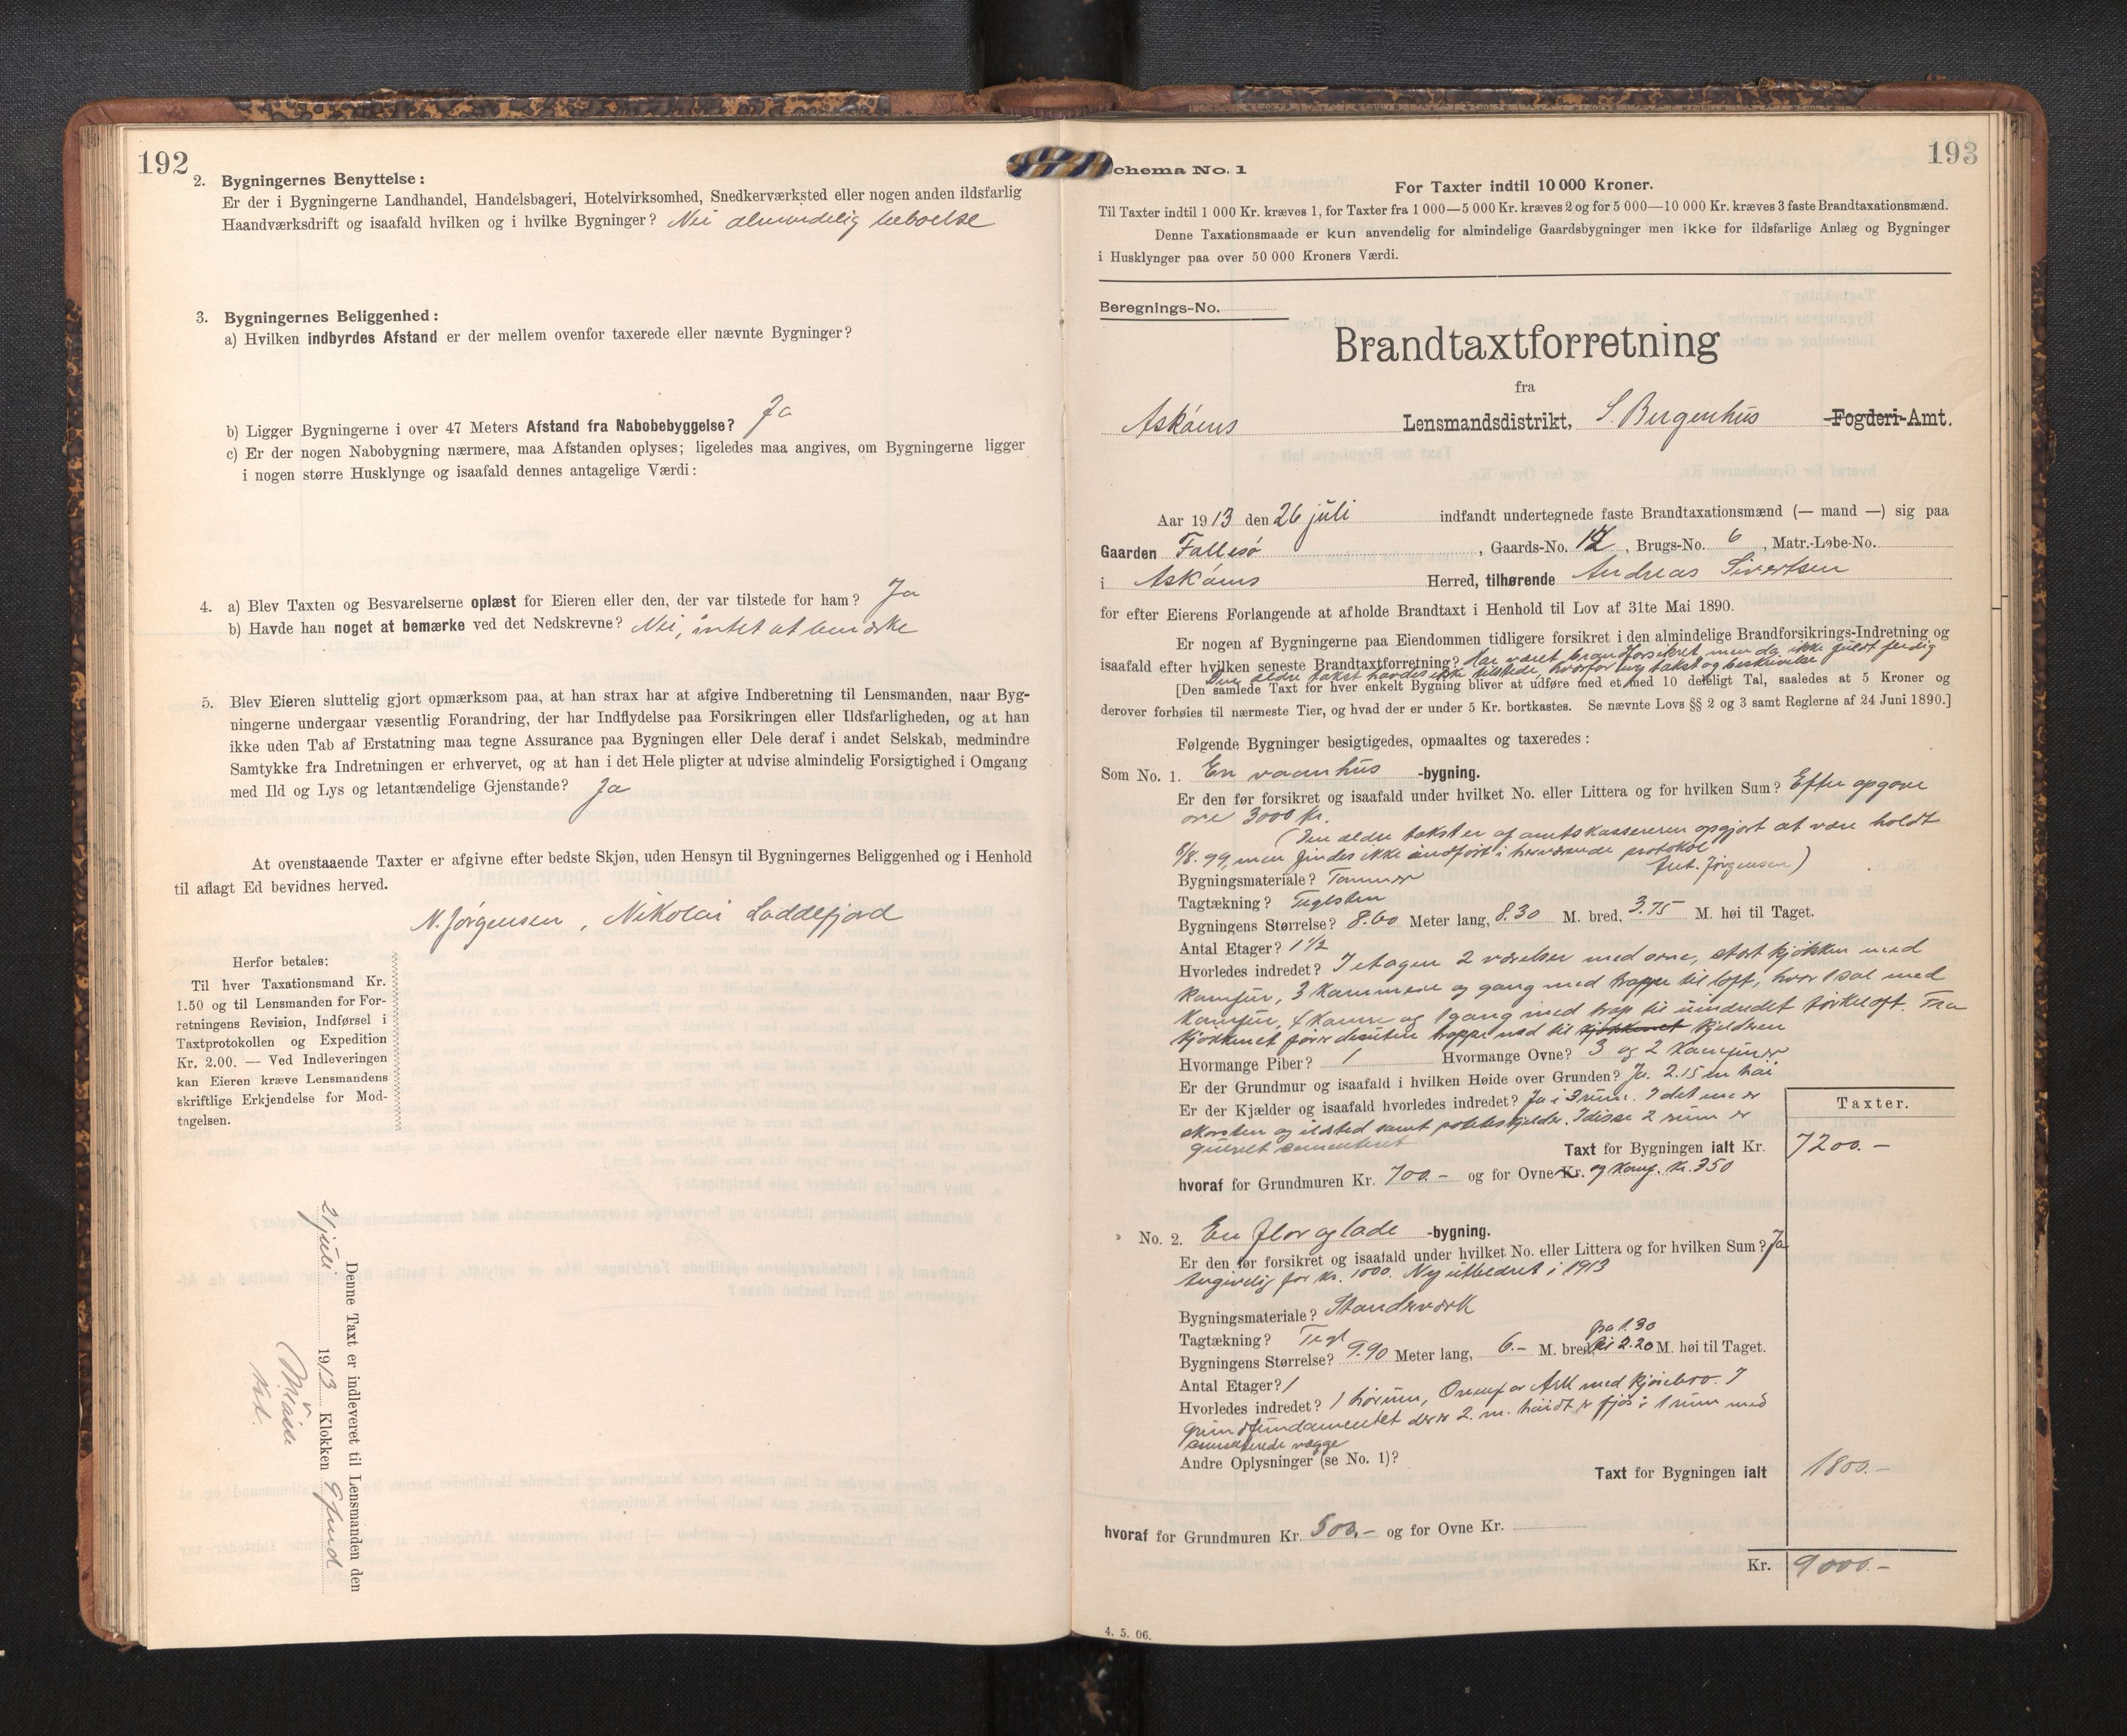 192
2. Bygningernes Benyttelse:
Er der i Bygningerne Landhandel, Handelsbageri, Hotelvirksomhed, Snedkerværksted eller nogen anden ildsfarlig
Haandværksdrift og isaafald hvilken og i hvilke Bygninger? Nei almindelig beboelse
3. Bygningernes Beliggenhed:
a) Hvilken indbyrdes Afstand er der mellem ovenfor taxerede eller nævnte Bygninger?
b) Ligger Bygningerne i over 47 Meters Afstand fra Nabobebyggelse? Ja
c) Er der nogen Nabobygning nærmere, maa Afstanden oplyses; ligeledes maa angives, om Bygningerne ligger
i nogen større Husklynge og isaafald dennes antagelige Værdi:
4. a) Blev Taxten og Besvarelserne oplæst for Eieren eller den, der var tilstede for ham? Ja
b) Havde han noget at bemærke ved det Nedskrevne? Nei, intet at bemærke
5. Blev Eieren sluttelig gjort opmærksom paa, at han strax har at afgive Indberetning til Lensmanden, naar Byg-
ningerne undergaar væsentlig Forandring, der har Indflydelse paa Forsikringen eller Ildsfarligheden, og at han
ikke uden Tab af Erstatning maa tegne Assurance paa Bygningen eller Dele deraf i andet Selskab, medmindre
Samtykke fra Indretningen er erhvervet, og at han i det Hele pligter at udvise almindelig Forsigtighed i Omgang
med Ild og Lys og letantændelige Gjenstande? Ja
At ovenstaaende Taxter er afgivne efter bedste Skjøn, uden Hensyn til Bygningernes Beliggenhed og i Henhold
til aflagt Ed bevidnes herved.
N. Jørgensen, Nikolai Loddefjord
Herfor betales:
Til hver Taxationsmand Kr.
1.50 og til Lensmanden for For-
retningens Revision, Indførsel i
Taxtprotokollen og Expedition
Kr. 2.00. — Ved Indleveringen
kan Eieren kræve Lensmandens
skriftlige Erkjendelse for Mod-
tagelsen.
Denne Taxt er indleveret til Lensmanden den
21 juli 1913 Klokken
Schema No. 1
193
For Taxter indtil 10 000 Kroner.
Til Taxter indtil 1 000 Kr. kræves 1, for Taxter fra 1 000—5 000 Kr. kræves 2 og for 5 000—10 000 Kr. kræves 3 faste Brandtaxationsmænd.
Denne Taxationsmaade er kun anvendelig for almindelige Gaardsbygninger men ikke for ildsfarlige Anlæg og Bygninger
i Husklynger paa over 50 000 Kroners Værdi.
Beregnings-No.
Brandtaxtforretning
fra
Askøens Lensmandsdistrikt, S. Bergenhus Fogderi-Amt.
Aar 1913 den 26 juli indfandt undertegnede faste Brandtaxationsmænd (— mand —) sig paa
Gaarden Follesø, Gaards-No. 12, Brugs-No. 6, Matr.-Løbe-No.
i Askøens Herred, tilhørende Andreas Sivertsen
for efter Eierens Forlangende at afholde Brandtaxt i Henhold til Lov af 31te Mai 1890.
Er nogen af Bygningerne paa Eiendommen tidligere forsikret i den almindelige Brandforsikrings-Indretning og
isaafald efter hvilken seneste Brandtaxtforretning? Har været brandforsikret, men da ikke fuldt ferdig
Den ældre takst havdes ikke tilstede, hvorfor ny takst og beskrivelse
[Den samlede Taxt for hver enkelt Bygning bliver at udføre med et med 10 deleligt Tal, saaledes at 5 Kroner og
derover forhøies til nærmeste Tier, og hvad der er under 5 Kr. bortkastes. Se nævnte Lovs §§ 2 og 3 samt Reglerne af 24 Juni 1890.]
Følgende Bygninger besigtigedes, opmaaltes og taxeredes:
Som No. 1. En vaanhus -bygning.
Er den før forsikret og isaafald under hvilket No. eller Littera og for hvilken Sum? Efter opgave
3000 kr.
(Den ældre takst er af amtskassereren opgjort at være holdt
8/8. 99, men findes ikke indført i herværende protokol
Ant. Jørgensen)
Bygningsmateriale? Tømmer
Tagtækning? Teglsten
Bygningens Størrelse? 8.60 Meter lang, 8.30 M. bred, 3.75 M. høi til Taget.
Antal Etager? 1½
Hvorledes indredet? I etagen 2 værelser med ovne, stort kjøkken med
komfur, 3 kammere og gang med trappe til loft, hvor 1 sal med
komfur, 4 kamre og 1 gang med trap til uindredet tørkeloft. Fra
kjøkkenet fører desuten trappe ned til kjøkkenet kjelderen
Hvormange Piber? 1 Hvormange Ovne? 3 og 2 komfurer
Er der Grundmur og isaafald i hvilken Høide over Grunden? Ja. 2.15 m høi
Er der Kjælder og isaafald hvorledes indredet? Ja i 3 rum. I det ene er
skorsten og ildsted samt potetkjelder. I disse 2 rum er
gulvet cementeret
Taxter.
Taxt for Bygningen ialt Kr. 7200.-
hvoraf for Grundmuren Kr. 700.- og for Ovne Kr. og komf. kr. 350
No. 2. En flor og lade -bygning.
Er den før forsikret og isaafald under hvilket No. eller Littera og for hvilken Sum? Ja
angivelig for kr. 1000. Ny utbedret i 1913
Bygningsmateriale? Standværk
Tagtækning? Tegl
Bygningens Størrelse? 9.90 Meter lang, 6.- M. bred, fra 1.30 til 2.20 M. høi til Taget.
Antal Etager? 1
Hvorledes indredet? 1 hørum, Ovenfor Ark med kjørebro. I
grundfundamentet der er 2. m. høidt er fjøs i 1 rum med
cementerede vægge
Andre Oplysninger (se No. 1)?
Taxt for Bygningen ialt 1800.-
hvoraf for Grundmuren Kr. 500.- og for Ovne Kr.
Kr. 9000.-
4. 5. 06.